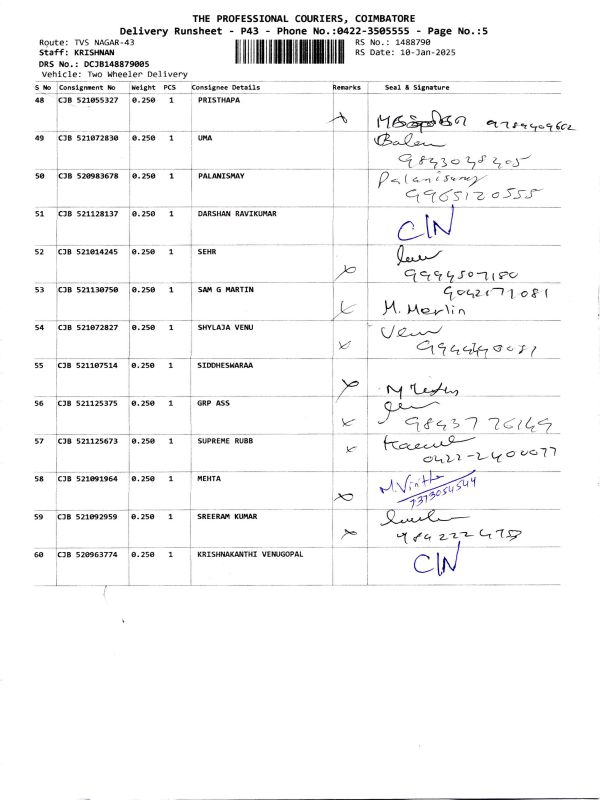 THE PROFESSIONAL COURIERS, COIMBATORE
Delivery Runsheet - P43 - Phone No.:0422-3505555 - Page No.:5
Route: TVS NAGAR-43 RS No.: 1488790
Staff: KRISHNAN RS Date: 10-Jan-2025
DRS No.: DCJB148879005
Vehicle: Two Wheeler Delivery
S No Consignment No Weight PCS Consignee Details Remarks Seal & Signature
48 CJB 521055327 0.250 1 PRISTHAPA
49 CJB 521072830 0.250 1 UMA Balan
50 CJB 520983678 0.250 1 PALANISMAY Palanisamy
9965120555
51 CJB 521128137 0.250 1 DARSHAN RAVIKUMAR CIN
52 CJB 521014245 0.250 1 SEHR
9994507180
53 CJB 521130750 0.250 1 SAM G MARTIN 9042171081
M. Merlin
54 CJB 521072827 0.250 1 SHYLAJA VENU Venu
55 CJB 521107514 0.250 1 SIDDHESWARAA
56 CJB 521125375 0.250 1 GRP ASS
9843776149
57 CJB 521125673 0.250 1 SUPREME RUBB
0422-2400077
58 CJB 521091964 0.250 1 MEHTA
7373054544
59 CJB 521092959 0.250 1 SREERAM KUMAR
60 CJB 520963774 0.250 1 KRISHNAKANTHI VENUGOPAL CIN